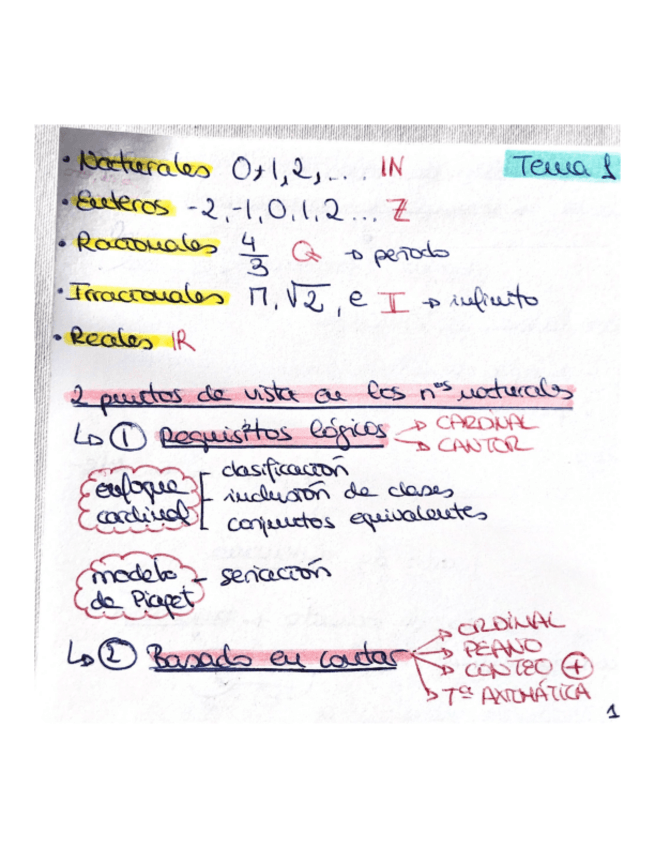 • Naturales 0,1,2,... IN Tema 1
• Enteros -2,-1,0,1,2... Z
• Racionales 4/3 Q → periodo
• Irracionales π, √2, e I → infinito
• Reales IR
2 puntos de vista en los nos naturales
↳ ① Requisitos lógicos → CARDINAL
→ CANTOR
enfoque cardinal
clasificación
inclusión de clases
conjuntos equivalentes
modelo de Piaget - seriación
↳ ② Basado en contar → ORDINAL
→ PEANO
→ CONTEO ⊕
→ Tª AXIOMÁTICA
1